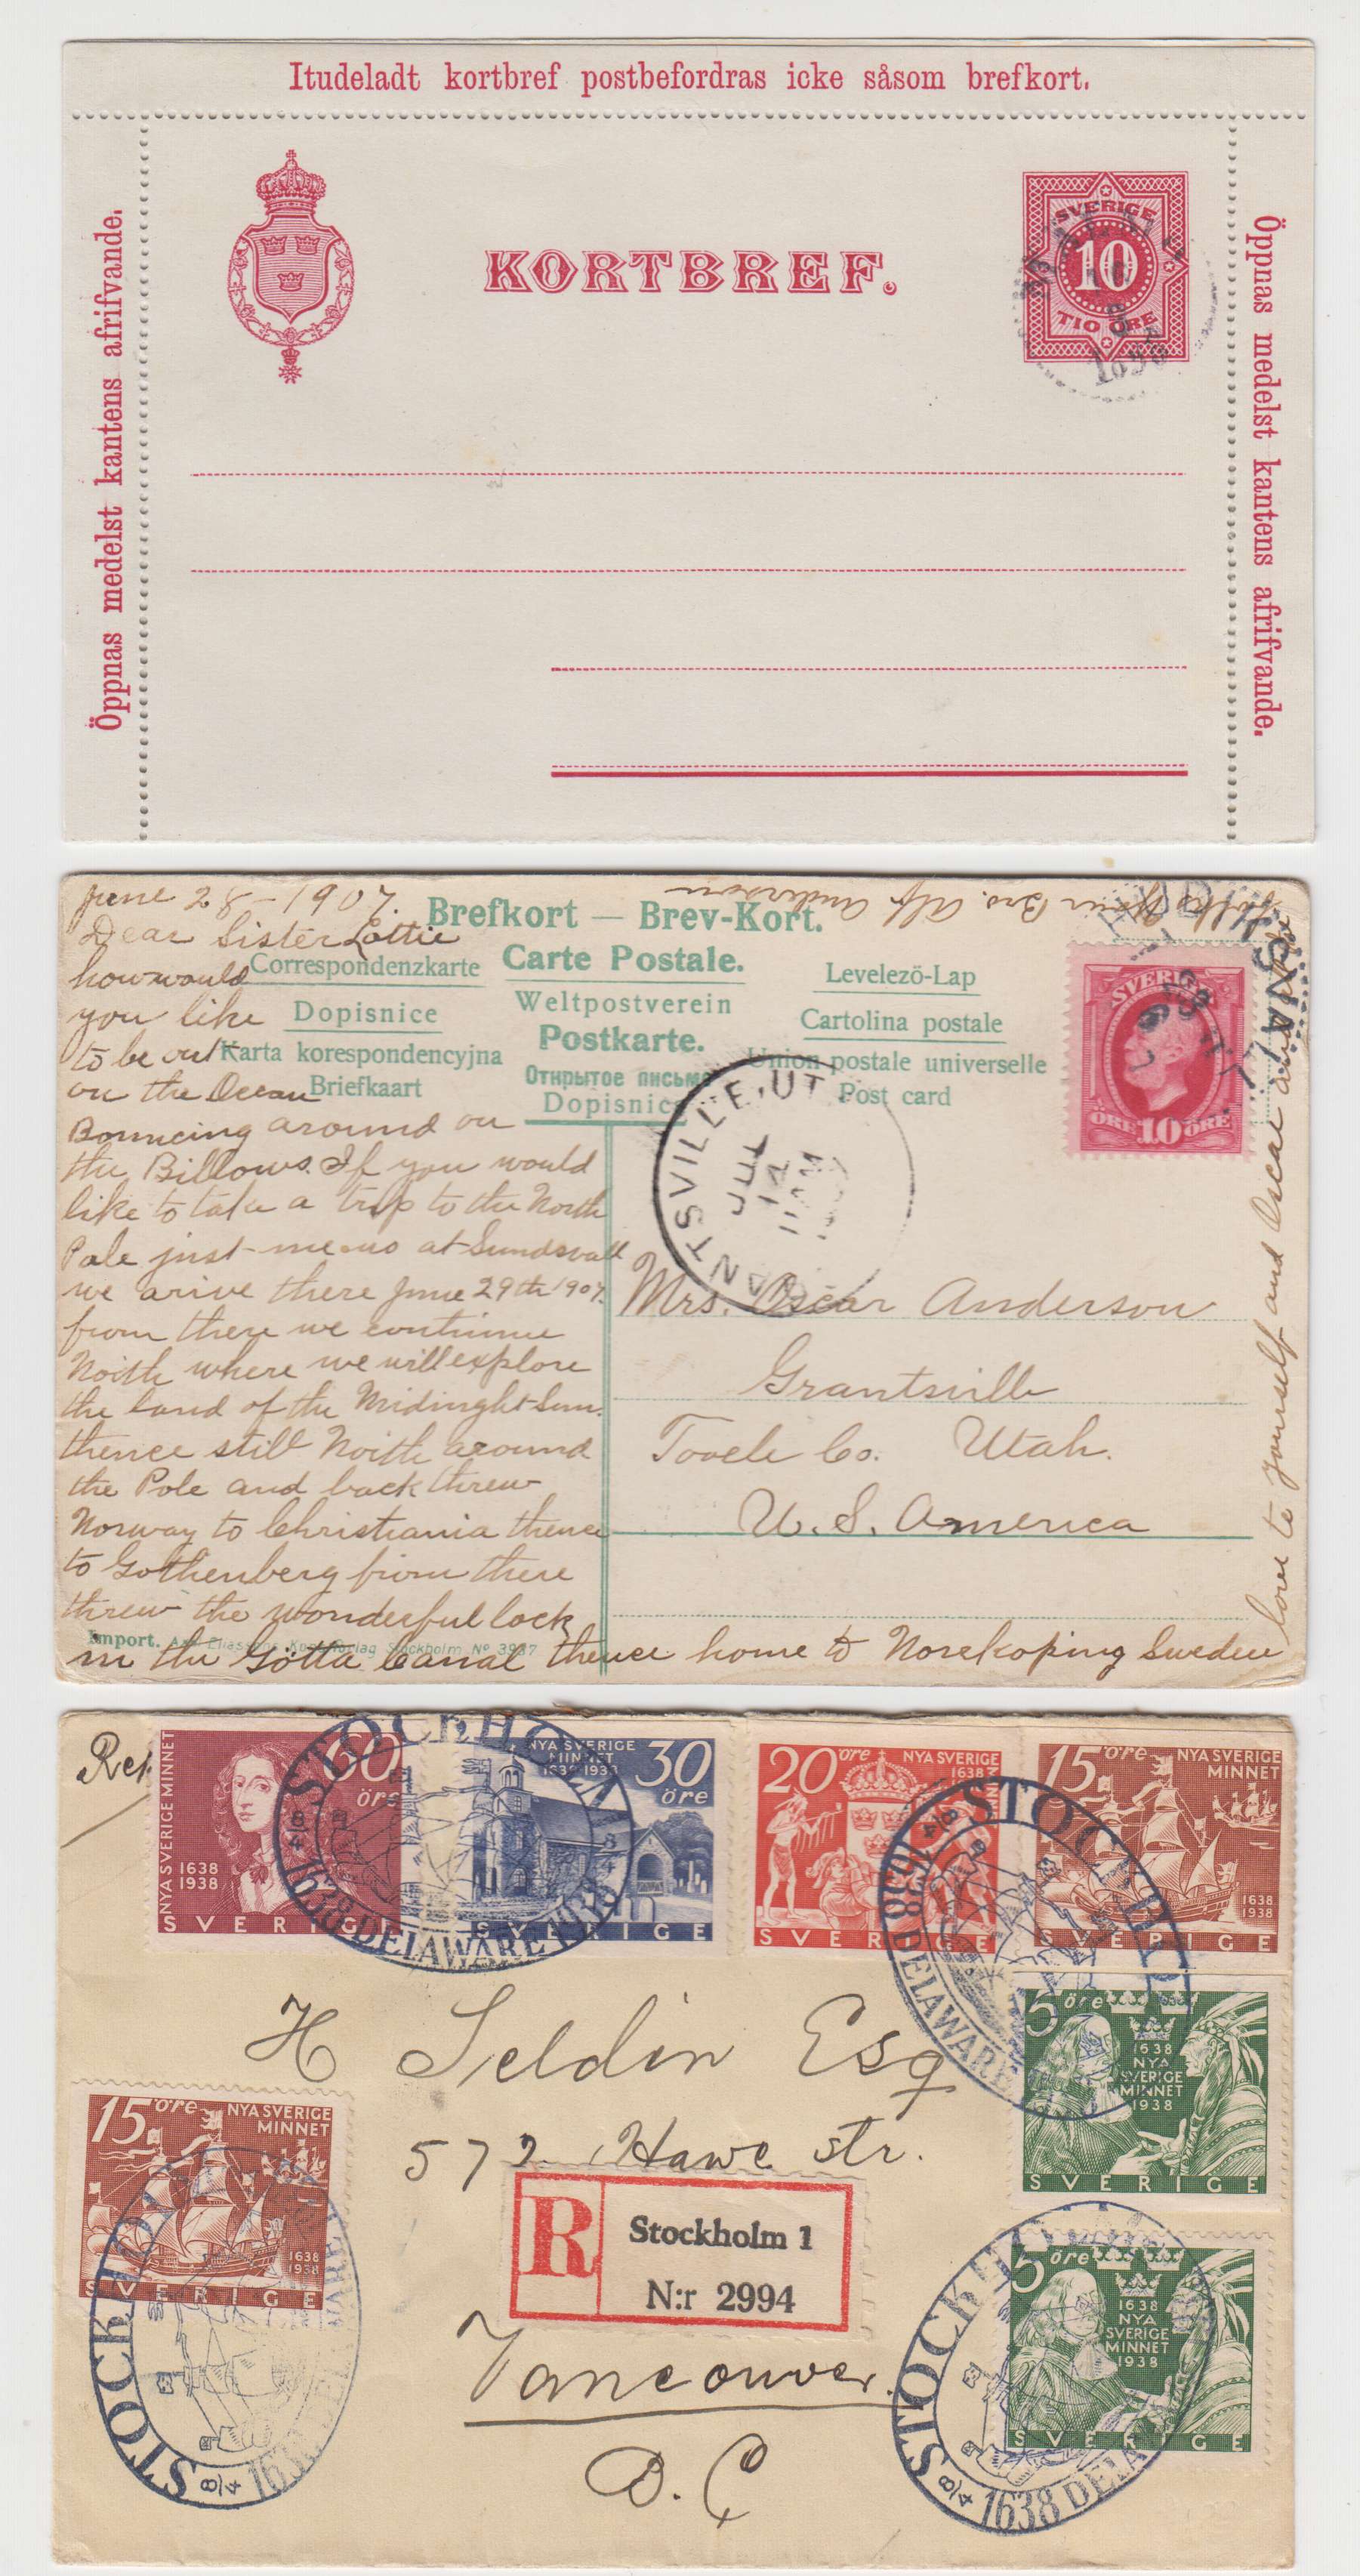 Itudeladt kortbref postbefordras icke såsom brefkort.
Öppnas medelst kantens afrifvande.
KORTBREF.
SVERIGE
10
TIO ÖRE
Öppnas medelst kantens afrifvande.
June 28-1907.
Dear Sister Lottie
how would
you like
to be out
on the Ocean
Bouncing around on
the Billows. If you would
like to take a trip to the North
Pole just me us at Sundsvall
we arive there June 29th 1907.
from there we continue
North where we will explore
the land of the Midnight Sun.
thence still North around
the Pole and back threw
Norway to Christiania thence
to Gothenberg from there
threw the wonderful lock
in the Götta Canal thence home to Norekoping Sweden
love to yourself and Oscar
Bro. Alf. Anderson
Brefkort — Brev-Kort.
Correspondenzkarte
Carte Postale.
Levelezö-Lap
Dopisnice
Weltpostverein
Cartolina postale
Karta korespondencyjna
Postkarte.
Union postale universelle
Briefkaart
Открытое письмо
Post card
Dopisnica
SVERIGE
ÖRE 10 ÖRE
NTSVILLE, UT
JUL
14
11 AM
Mrs. Oscar Anderson
Grantsville
Tooele Co. Utah.
U. S. America
Import. Axel Eliassons Konstförlag Stockholm No 3937
NYA SVERIGE MINNET
60 öre
1638
1938
SVERIGE
NYA SVERIGE
MINNET
1638 1938
30 öre
SVERIGE
20 öre NYA SVERIGE
1638
SVERIGE
15 öre NYA SVERIGE
MINNET
1638
1938
SVERIGE
STOCKHOLM
8/4
1638 DELAWARE 1938
STOCKHOLM
8/4
1638 DELAWARE
5 öre
1638
NYA
SVERIGE
MINNET
1938
SVERIGE
H Seldin Esq
Hawe str.
15 öre NYA SVERIGE
MINNET
1638
1938
SVERIGE
STOCKHOLM
8/4
1638 DELAWARE
R
Stockholm 1
N:r 2994
5 öre
1638
NYA
SVERIGE
MINNET
1938
SVERIGE
STOCKHOLM
8/4
1638 DELAWARE
Vancouver.
B. C